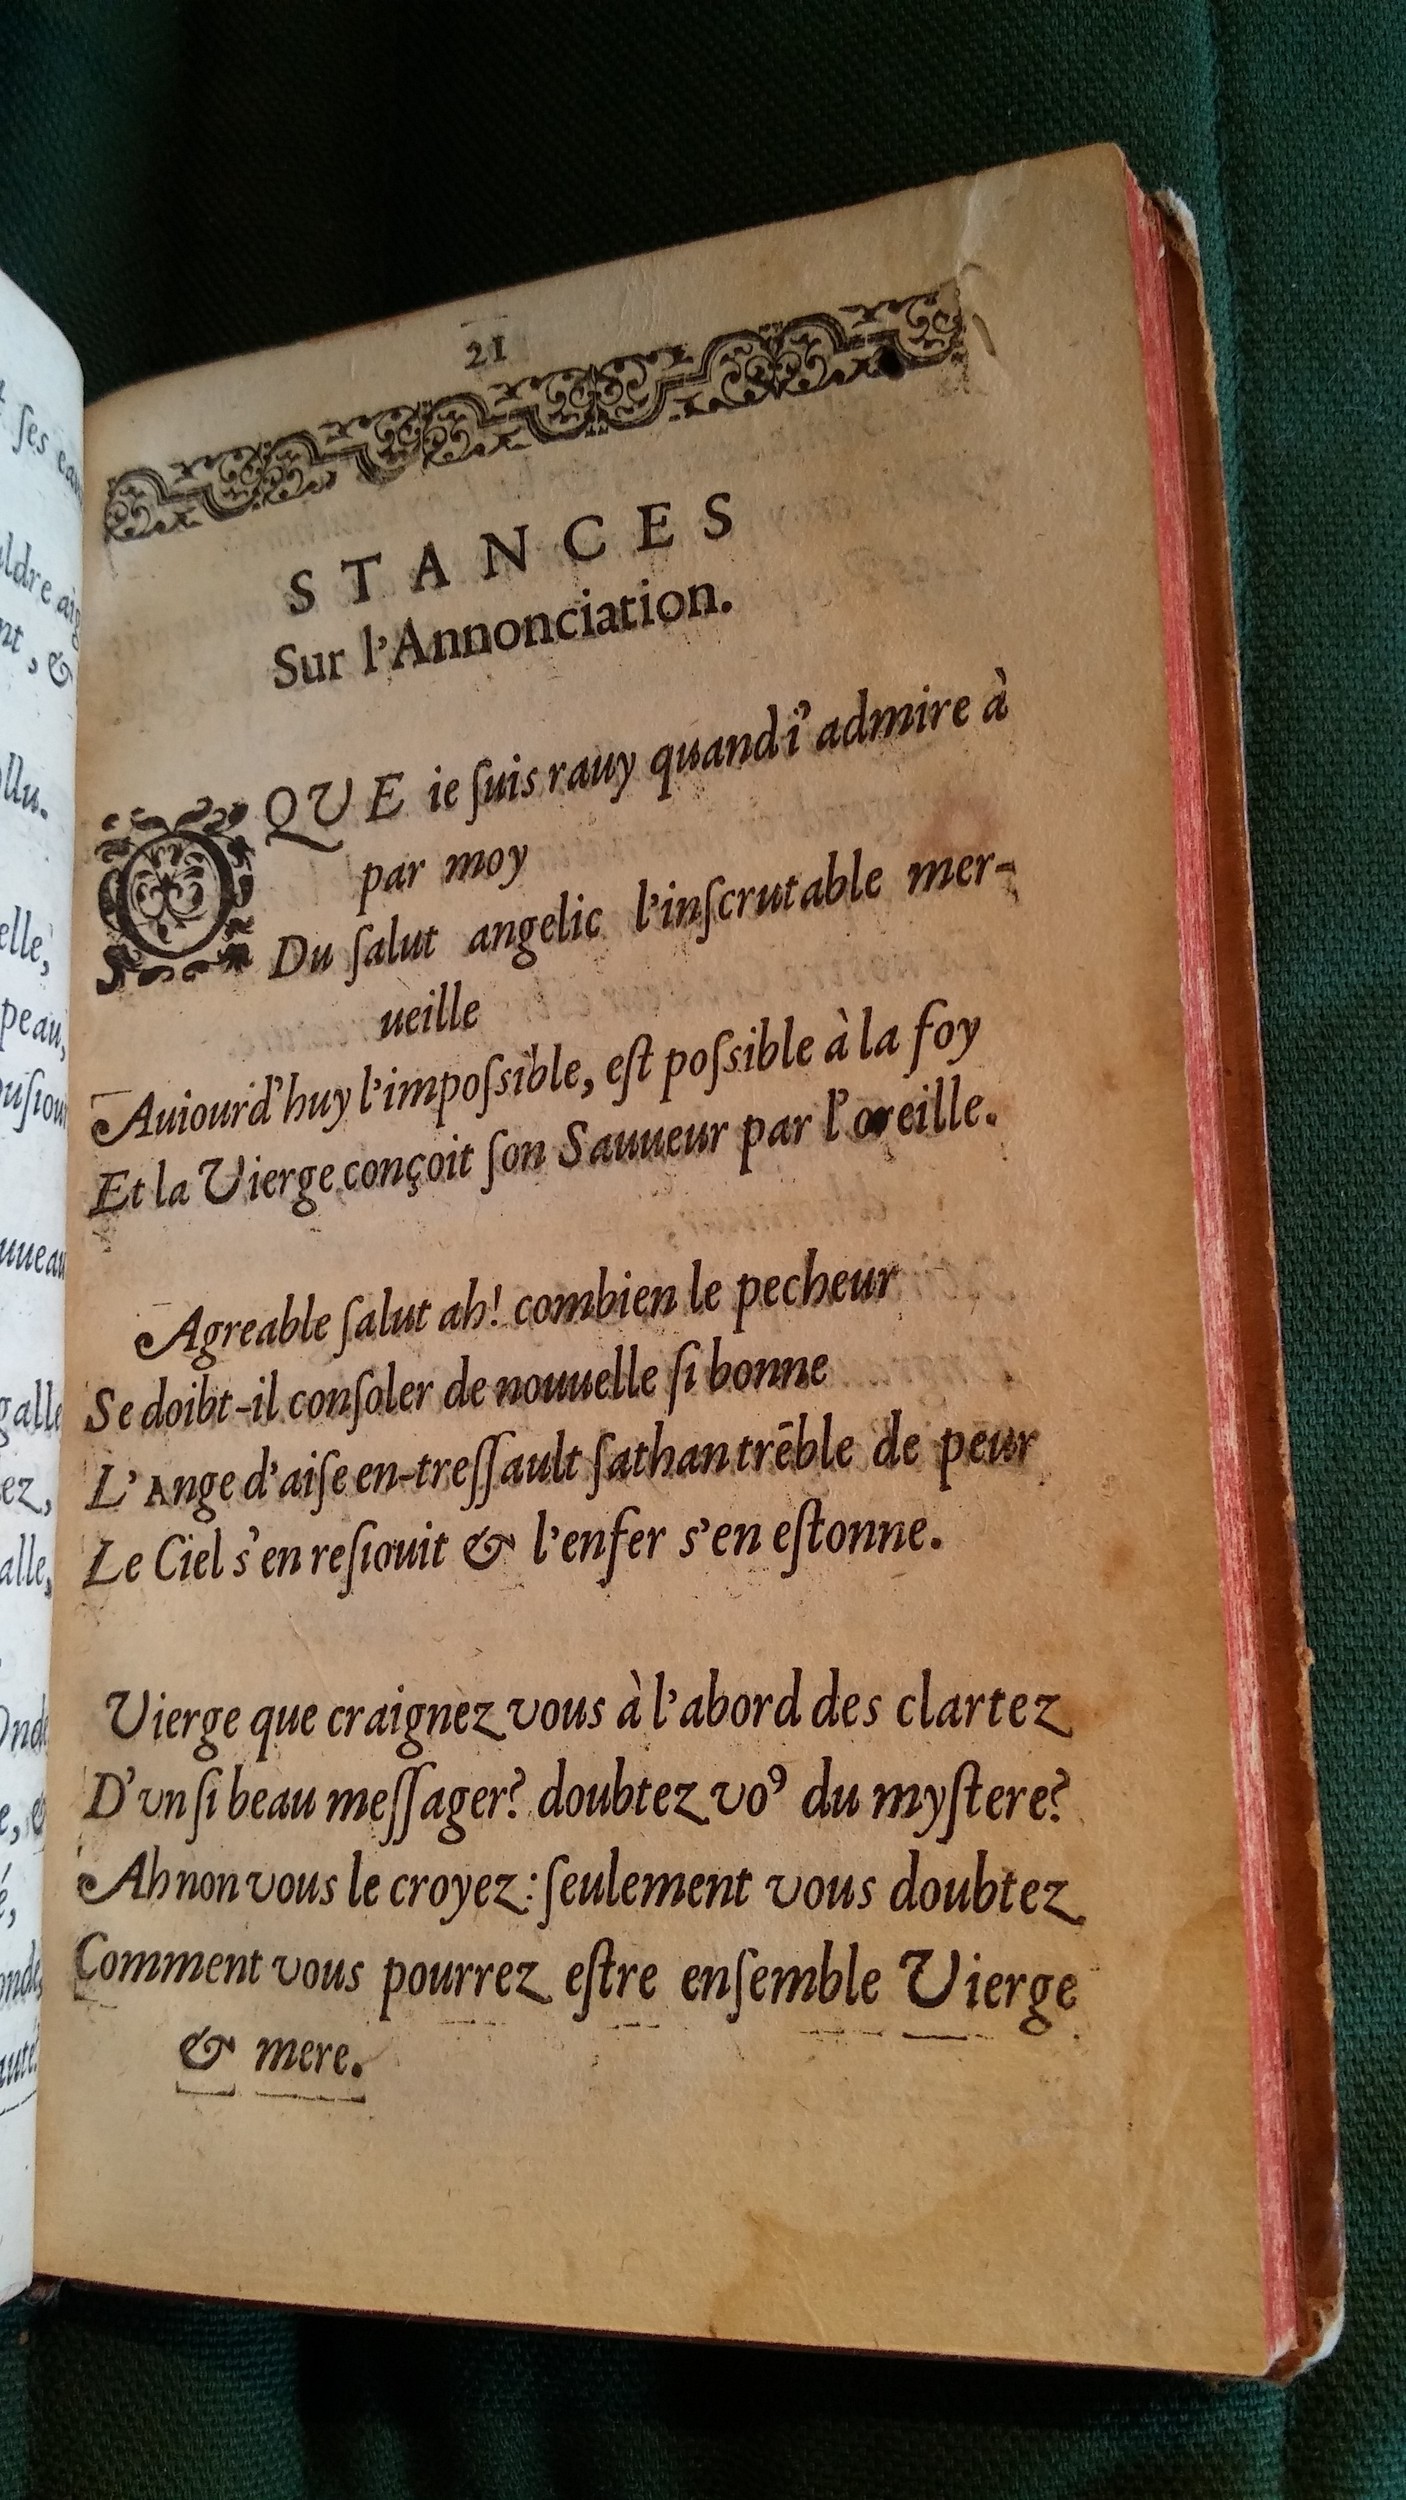 21
STANCES
Sur l'Annonciation.
O QUE ie ſuis rauy quand i'admire à
par moy
Du ſalut angelic l'inſcrutable mer-
ueille
Auiourd'huy l'impoſsible, eſt poſsible à la foy
Et la Vierge conçoit ſon Sauueur par l'oreille.
Agreable ſalut ah! combien le pecheur
Se doibt-il conſoler de nouuelle ſi bonne
L'Ange d'aiſe en-treſſault ſathan trēble de peur
Le Ciel s'en reſiouit & l'enfer s'en eſtonne.
Vierge que craignez vous à l'abord des clartez
D'vn ſi beau meſſager? doubtez voꝰ du myſtere?
Ah non vous le croyez: ſeulement vous doubtez
Comment vous pourrez eſtre enſemble Vierge
& mere.